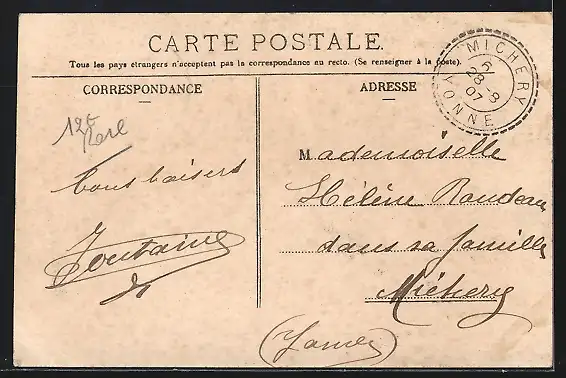 CARTE POSTALE.
Tous les pays étrangers n'acceptent pas la correspondance au recto. (Se renseigner à la poste).
CORRESPONDANCE
ADRESSE
MICHERY
6
28-8
07
YONNE
12€
bons baisers
Fontaine
Mademoiselle
Hélène
dans sa famille
Michery
(Yonne)